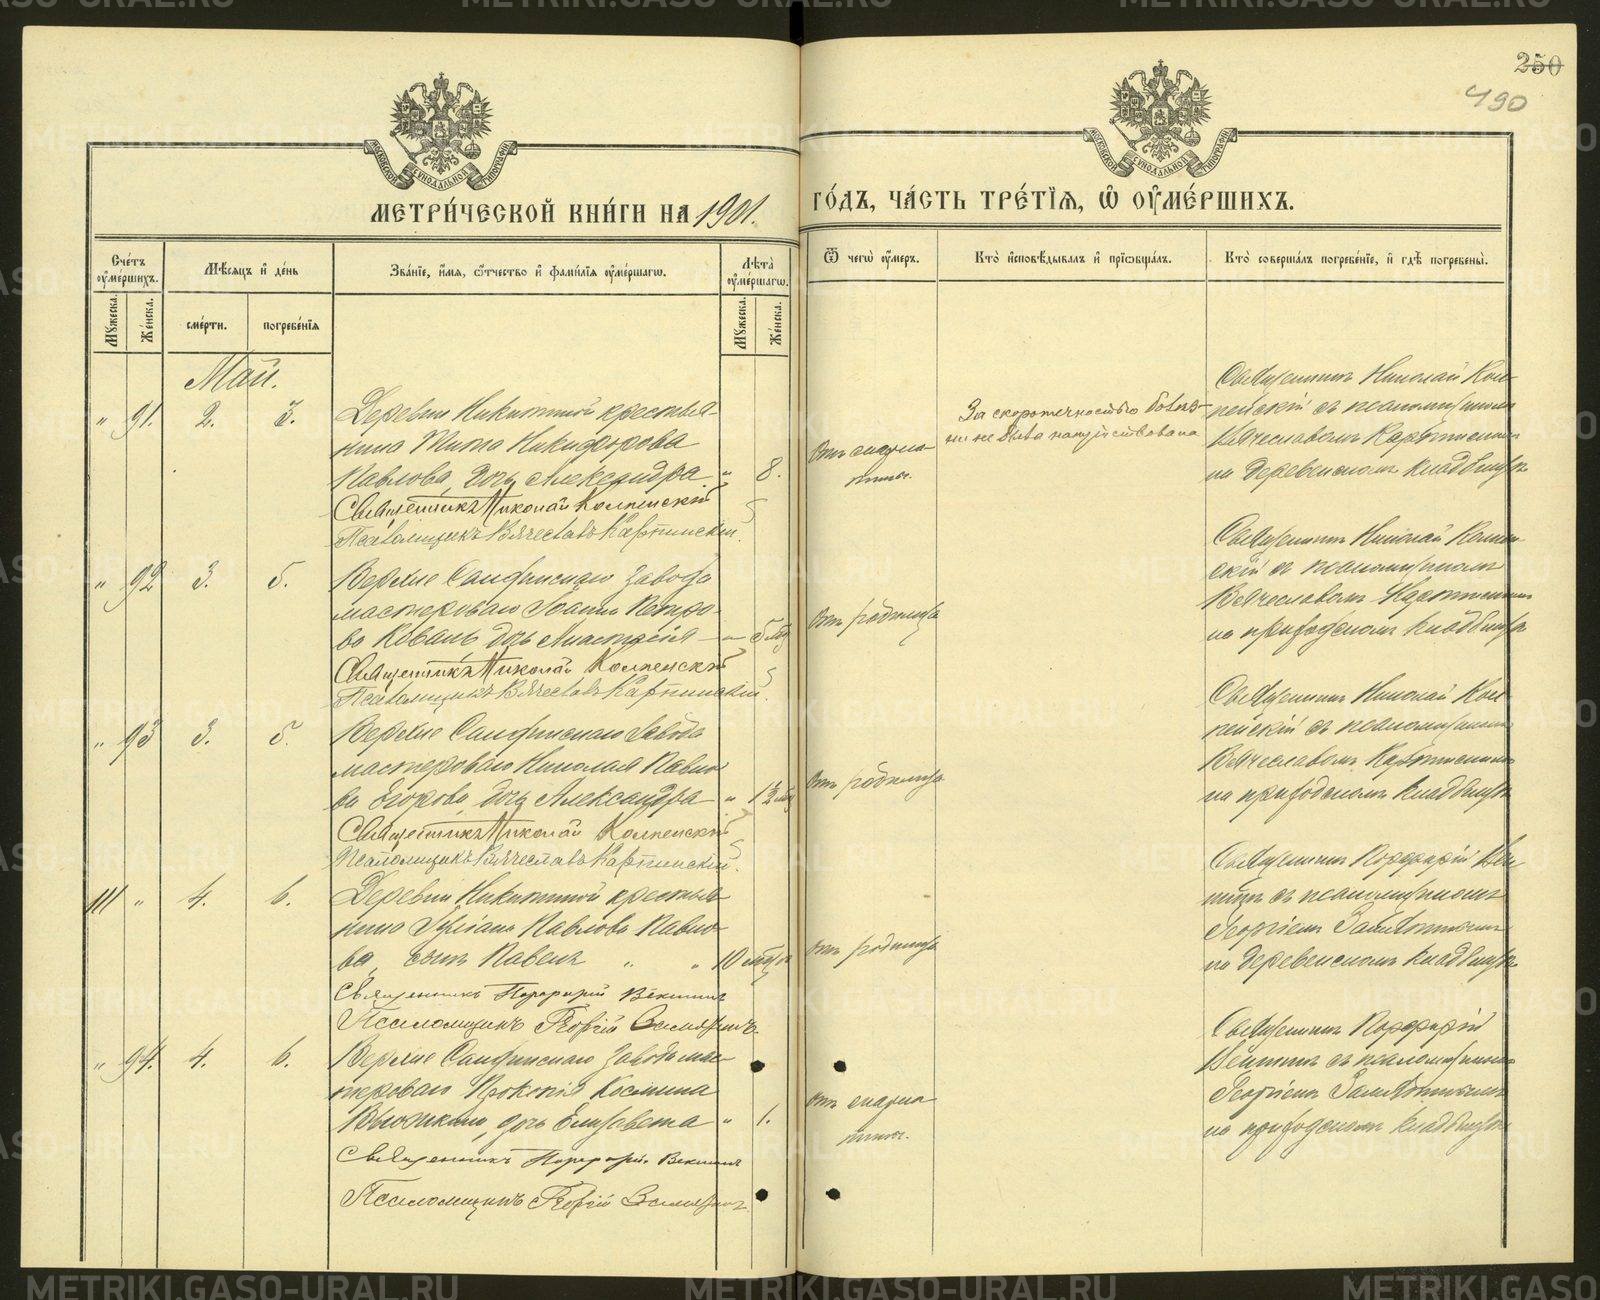 250
490
МЕТРИ́ЧЕСКОЙ КНИ́ГИ НА 1901.
ГО́ДЪ, ЧА́СТЬ ТРЕ́ТІЯ, Ѡ҆ ОУ҆МЕ́РШИХЪ.
Сче́тъ оу҆ме́ршихъ.
Мѣ́сяцъ и҆ де́нь
Зва́ніе, и҆́мя, ѻ҆́тчество и҆ фами́лія оу҆ме́ршагѡ.
Лѣ́та оу҆ме́ршагѡ.
Ѿ чегѡ̀ оу҆́меръ.
Кто̀ и҆сповѣ́дывалъ и҆ прїѡбща́лъ.
Кто̀ соверша́лъ погребе́ніе, и҆ гдѣ̀ погребены̀.
Му́жеска.
Же́нска.
сме́рти.
погребе́нія
Му́жеска.
Же́нска.
Май.
" 91. 2. 3.
Деревни Никитиной крестья-
нина Тита Никифорова
Павлова, дочь Александра " 8.
Священникъ Николай Колпенскій
Псаломщикъ Вячеславъ Карпинскій.
Отъ скарла-
тины.
За скоротечностью болѣз-
ни не была напутствована
Священникъ Николай Кол-
пенскій съ псаломщикомъ
Вячеславомъ Карпинскимъ
на деревенскомъ кладбищѣ
" 92 3. 5.
Верхне Санфинскаго завода
мастероваго Іоанна Петро-
ва Коваль дочь Анастасія — " 5 мѣс
Священникъ Николай Колпенскій
Псаломщикъ Вячеславъ Карпинскій.
Отъ родимца
Священникъ Николай Колпен-
скій съ псаломщикомъ
Вячеславомъ Карпинскимъ
на приходскомъ кладбищѣ
" 93 3. 5.
Верхне Санфинскаго завода
мастероваго Николая Павло-
ва Егорова дочь Александра " 1½ мѣс
Священникъ Николай Колпенскій
Псаломщикъ Вячеславъ Карпинскій.
Отъ родимца
Священникъ Николай Кол-
пенскій съ псаломщикомъ
Вячеславомъ Карпинскимъ
на приходскомъ кладбищѣ
111 " 4. 6.
Деревни Никитиной крестья-
нина Павлова Павло-
ва, сынъ Павелъ " " 10 мѣся
Священникъ Порфирій Векшинъ
Псаломщикъ Георгій
отъ родимца
Священникъ Порфирій Век-
шинъ съ псаломщикомъ
Георгіемъ
на деревенскомъ кладбищѣ
" 94. 4. 6.
Верхне Санфинскаго завода мас-
тероваго Прокопія Космина
дочь Елизавета " 1.
Священникъ Порфирій Векшинъ
Псаломщикъ Георгій
отъ скарла-
тины.
Священникъ Порфирій
Векшинъ съ псаломщикомъ
Георгіемъ
на приходскомъ кладбищѣ
METRIKI.GASO-URAL.RU